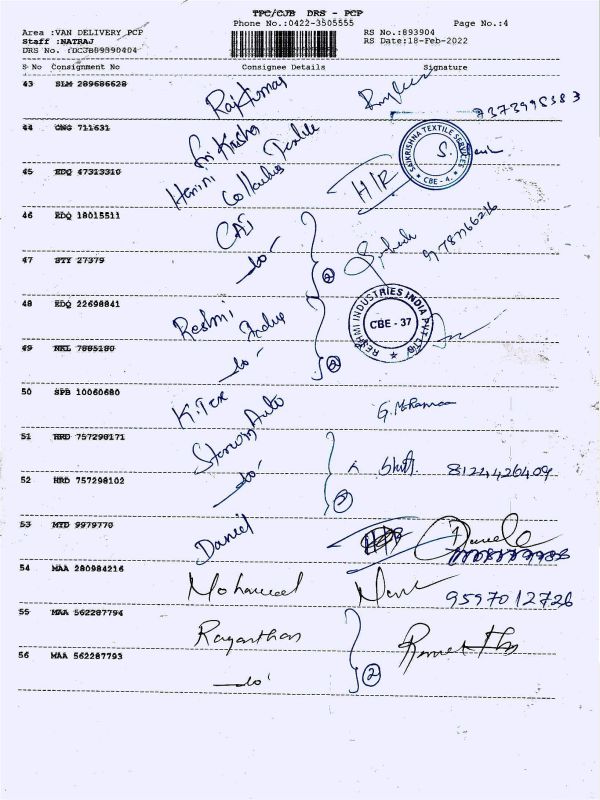 TPC/CJB DRS - PCP
Phone No.:0422-3505555 Page No.:4
Area :VAN DELIVERY PCP RS No.:893904
Staff :NATRAJ RS Date:18-Feb-2022
DRS No. :DCJB89390404
S No Consignment No Consignee Details Signature
43 SLM 289686628 RajKumar 7373995383
44 CNG 711631 Sri Krishna Textile
SAIKRISHNA TEXTILE SERVICES CBE - 4.
45 EDQ 47313310 Harini H/R
46 EDQ 18015511 CAI
47 STY 27379 do 2
48 EDQ 22698841 Reshmi Indus
RESHMI INDUSTRIES INDIA PVT LTD CBE - 37
49 NKL 7885180 do 2
50 SPB 10060680 K.Tex
51 HRD 757298171 Auto 8124426409
52 HRD 757298102 do 2
53 MTD 9979770 Daniel
54 MAA 280984216 Mohamed 9597012726
55 MAA 562287794
56 MAA 562287793 do 2